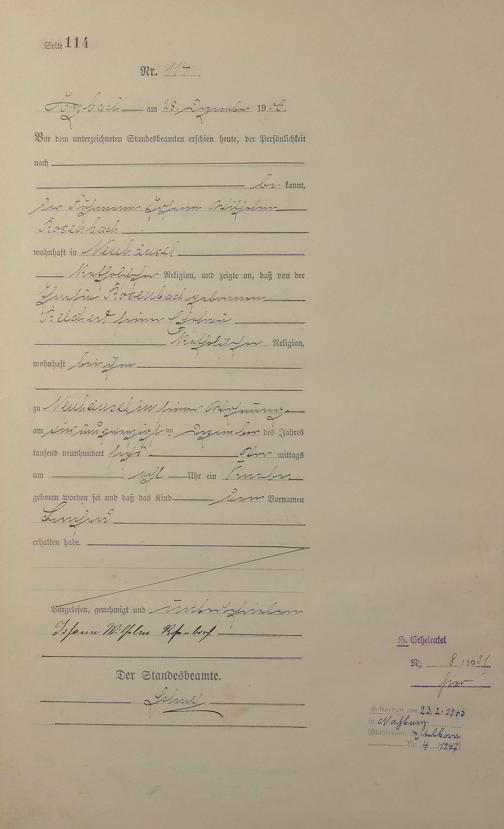 Seite 114
Nr. 114
am 28. Dezember 1906.
Vor dem unterzeichneten Standesbeamten erschien heute, der Persönlichkeit
nach
be kannt,
der Johann Wilhelm
Rosenbach
wohnhaft in Neuhäusel
Katholischer Religion, und zeigte an, daß von der
Rosenbach geborenen
Reichert seiner Ehefrau
Katholischer Religion,
wohnhaft bei ihm
zu Neuhäusel in seiner Wohnung
am ten Dezember des Jahres
tausend neunhundert sechs Vor mittags
um acht Uhr ein Knabe
geboren worden sei und daß das Kind den Vornamen
erhalten habe.
Vorgelesen, genehmigt und unterschrieben
Johann Wilhelm
Der Standesbeamte.
H. Geheiratet
Nr. 8 / 1931
hier
Gestorben am 23.2.1945
in
Standesamt
Nr. 4